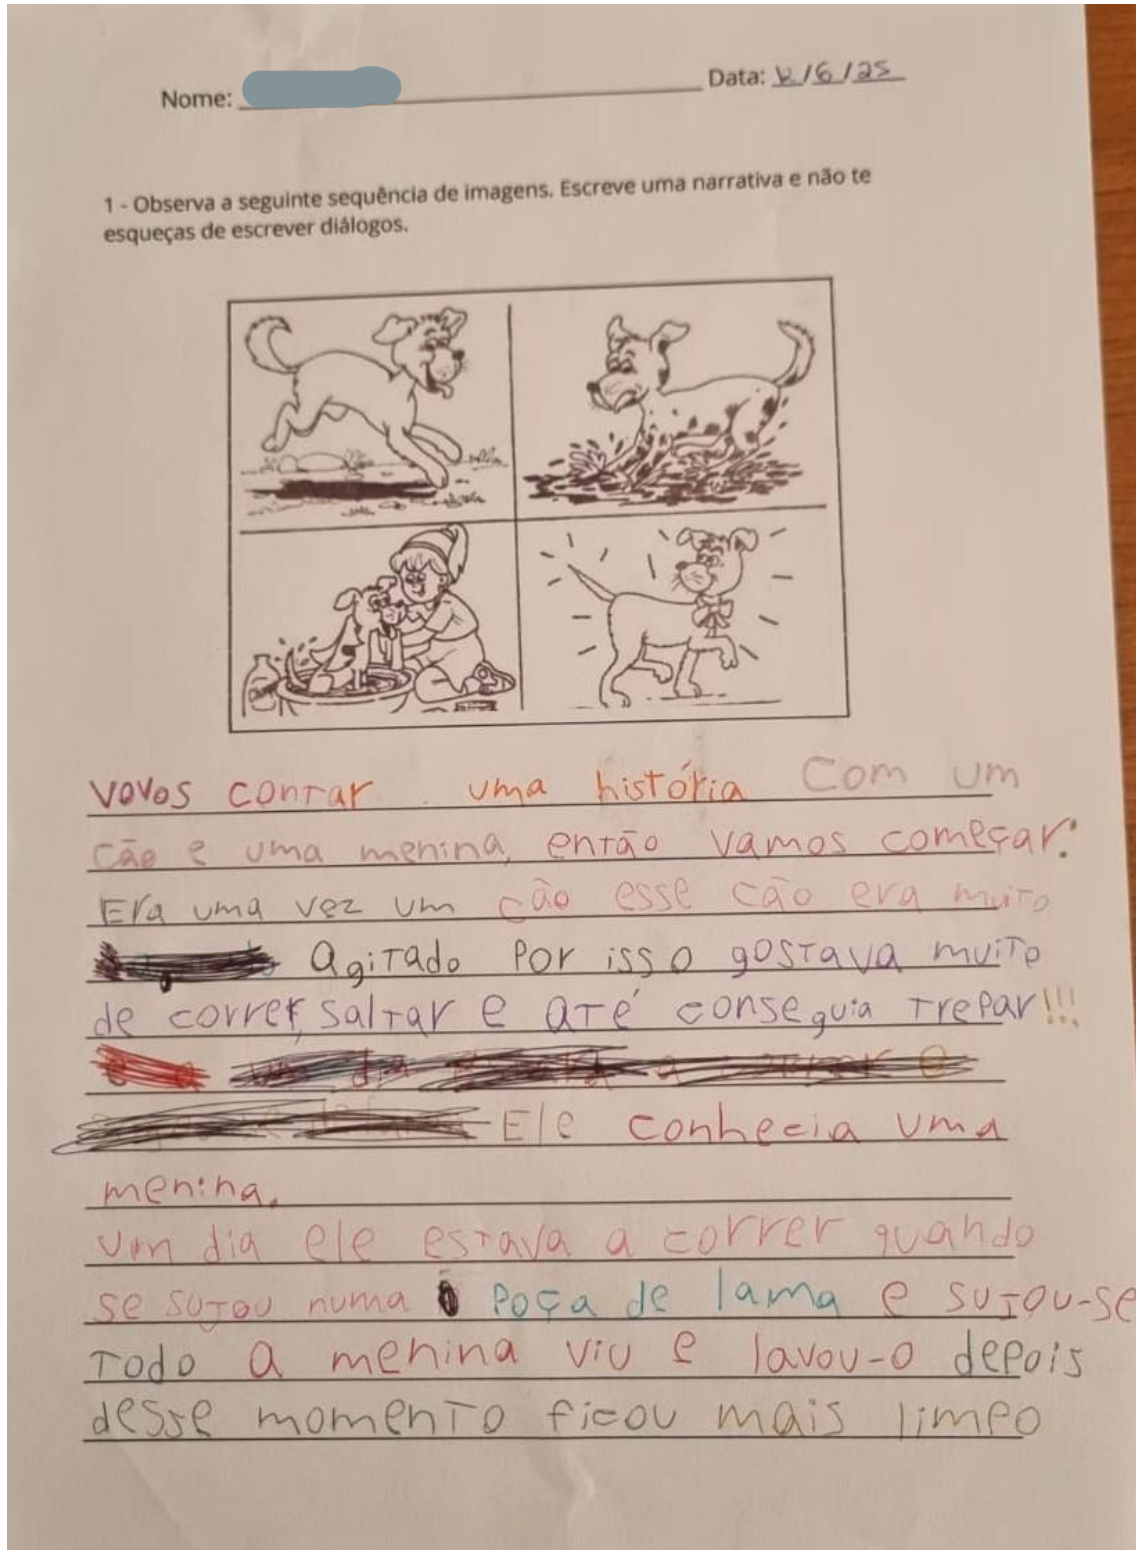 Nome: Data: /6/25
1 - Observa a seguinte sequência de imagens. Escreve uma narrativa e não te
esqueças de escrever diálogos.
vovos contar uma história com um
cão e uma menina, então vamos começar:
Era uma vez um cão esse cão era muito
agitado por isso gostava muito
de correr, saltar e até conseguia trepar!!!
Ele conhecia uma
menina.
um dia ele estava a correr quando
se sujou numa poça de lama e sujou-se
todo a menina viu e lavou-o depois
desse momento ficou mais limpo